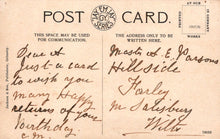 POST CARD.
THIS SPACE MAY BE USED
FOR COMMUNICATION.
THE ADDRESS ONLY TO BE
WRITTEN HERE.
Dear A
Just a card
to wish you
many Happy
returns of your
Birthday
Master C Parsons
Hillside
Farley
nr Salisbury
Wilts